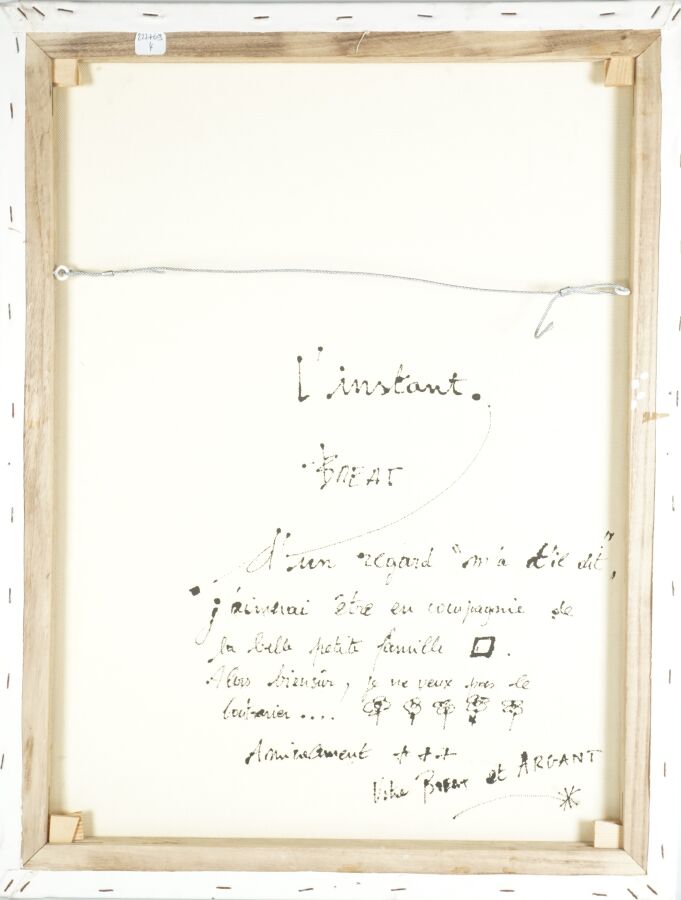 L'instant.
BREAT
d'un regard "m'a t'il dit",
j'aimerai être en compagnie de
la belle petite famille
Alors biensûr, je ne veux pas le
contrarier....
Amicalement +++
Votre BREAT et ARGANT